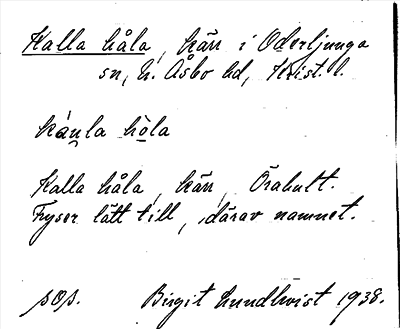 Kalla håla, kärr i Oderljunga
sn, N. Åsbo hd, Krist. l.
káu̯la hò̱la
Kalla håla, kärr, Örahult.
Fryser lätt till, därav namnet.
sop. Birgit Lundkvist 1938.